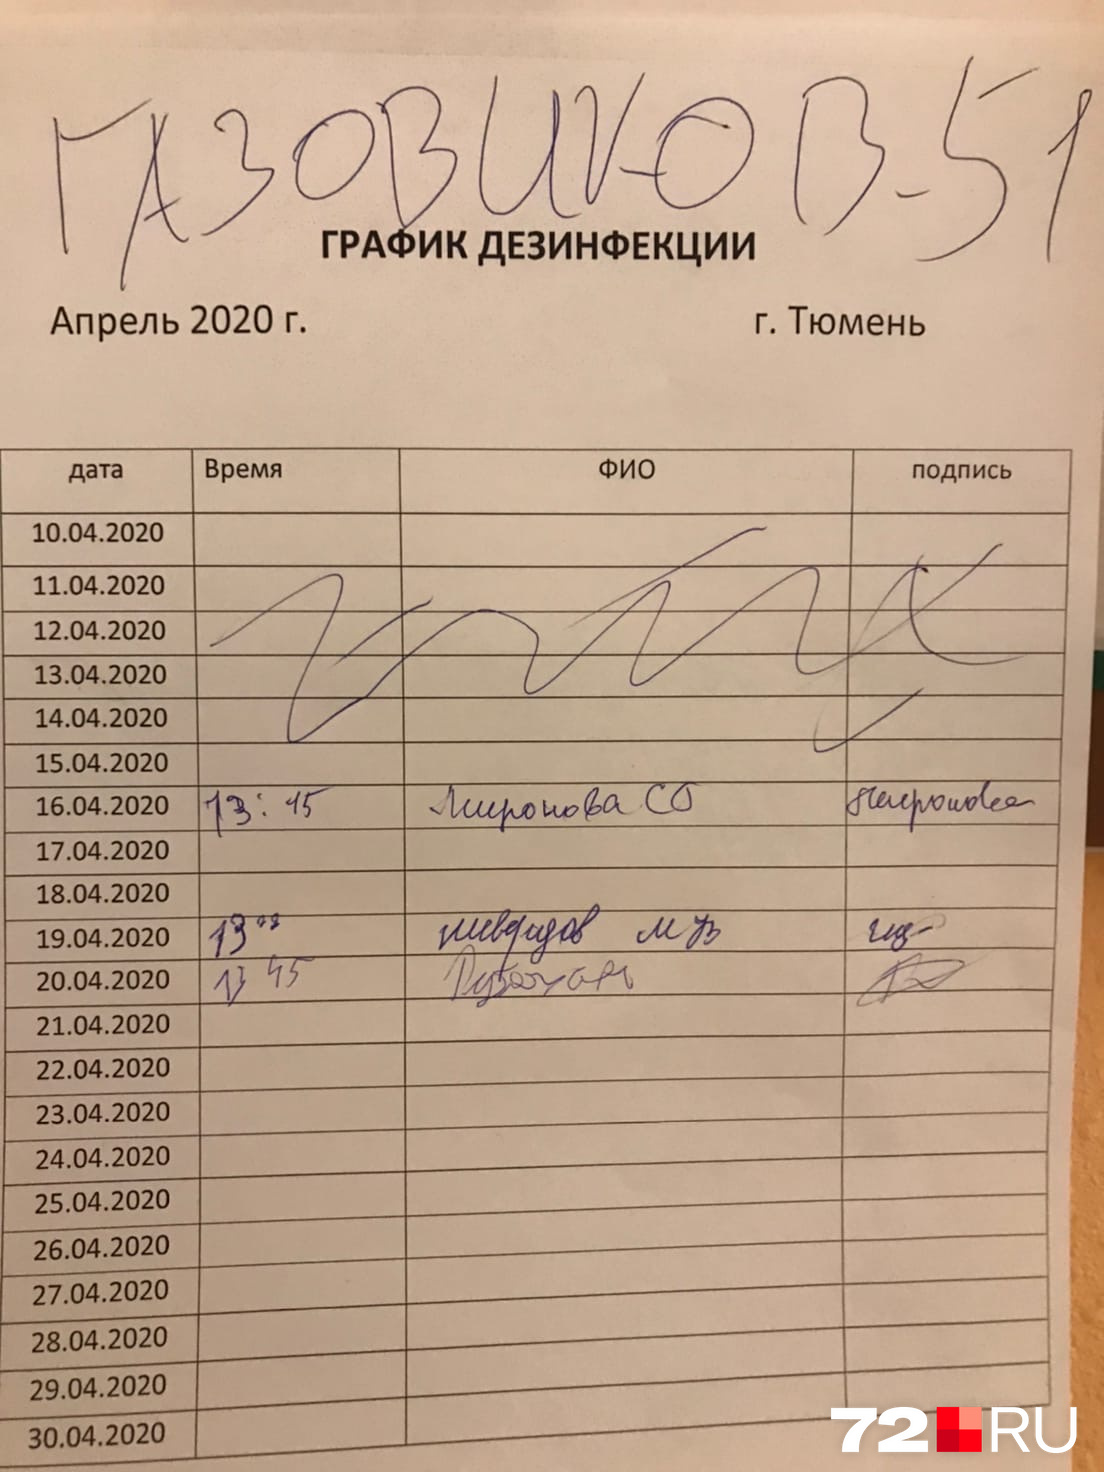 ГАЗОВИКОВ-51
ГРАФИК ДЕЗИНФЕКЦИИ
Апрель 2020 г. г. Тюмень
дата Время ФИО подпись
10.04.2020
11.04.2020
12.04.2020
13.04.2020
14.04.2020
15.04.2020
16.04.2020 13:45 Миронова СБ Миронова
17.04.2020
18.04.2020
19.04.2020 13
20.04.2020 13 45
21.04.2020
22.04.2020
23.04.2020
24.04.2020
25.04.2020
26.04.2020
27.04.2020
28.04.2020
29.04.2020
30.04.2020
72.RU